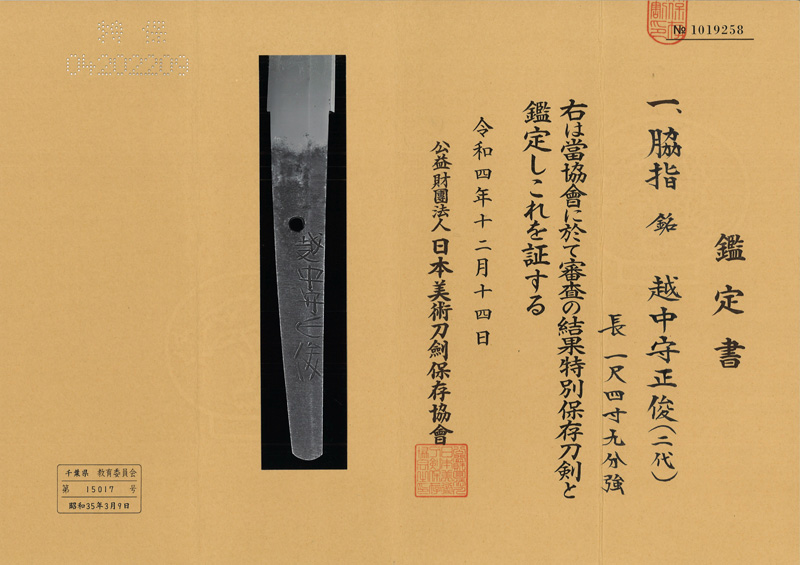 № 1019258
鑑定書
一、脇指 銘 越中守正俊(二代)
長 一尺四寸九分強
右は當協會に於て審査の結果特別保存刀剣と
鑑定しこれを証する
令和四年十二月十四日
公益財團法人 日本美術刀劍保存協會
越中守正俊
特保
04202209
千葉県 教育委員会
第 15017 号
昭和35年3月9日